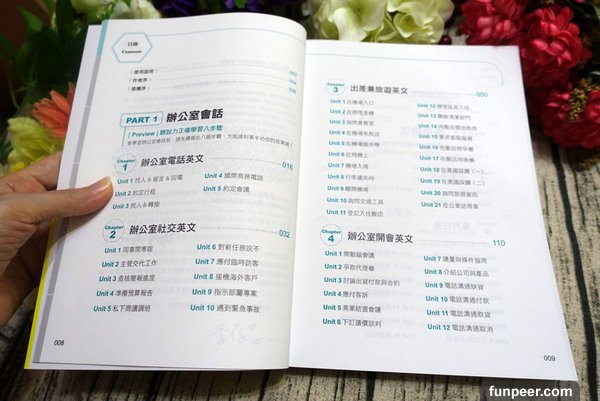 目錄
Contents
〔使用說明〕
〔作者序〕
〔推薦序〕
PART 1 辦公室會話
[ Preview ] 聽說力正確學習八步驟
Chapter 1 辦公室電話英文 016
Unit 1 找人&留言&回電
Unit 2 約定行程
Unit 3 找人&轉接
Unit 4 國際商務電話
Unit 5 約定會議
Chapter 2 辦公室社交英文 032
Unit 1 同事間寒暄
Unit 2 主管交代工作
Unit 3 查核簡報進度
Unit 4 準備預算報告
Unit 5 私下商議調班
Unit 6 對新任務說不
Unit 7 應付臨時訪客
Unit 8 接機海外客戶
Unit 9 指示部屬專案
Unit 10 遇到緊急事故
008
Chapter 3 出差兼旅遊英文 050
Unit 1 在機場入口
Unit 2 在辦理登機
Unit 3 詢問會客室
Unit 4 在機場免稅店
Unit 5 在機場換外幣
Unit 6 在飛機上
Unit 7 機場入境
Unit 8 行李遺失時
Unit 9 離開機場
Unit 10 詢問交通工具
Unit 11 登記入住飯店
Unit 12 辦理延長入住
Unit 13 聯絡清潔部門
Unit 14 向飯店提出抱怨
Unit 15 要求客房服務
Unit 16 在飯店用早餐
Unit 17 在飯店用晚餐
Unit 18 在異國採購（一）
Unit 19 在異國採購（二）
Unit 20 詢問旅遊資訊
Unit 21 在公車站等車
Chapter 4 辦公室開會英文 110
Unit 1 開動腦會議
Unit 2 爭取代理權
Unit 3 討論出貨付款與合約
Unit 4 應付客訴
Unit 5 異業結盟會議
Unit 6 下訂議價談判
Unit 7 議量與條件協商
Unit 8 介紹公司與產品
Unit 9 電話溝通缺貨
Unit 10 電話溝通付款
Unit 11 電話溝通取貨
Unit 12 電話溝通取消
009
funpeer.com